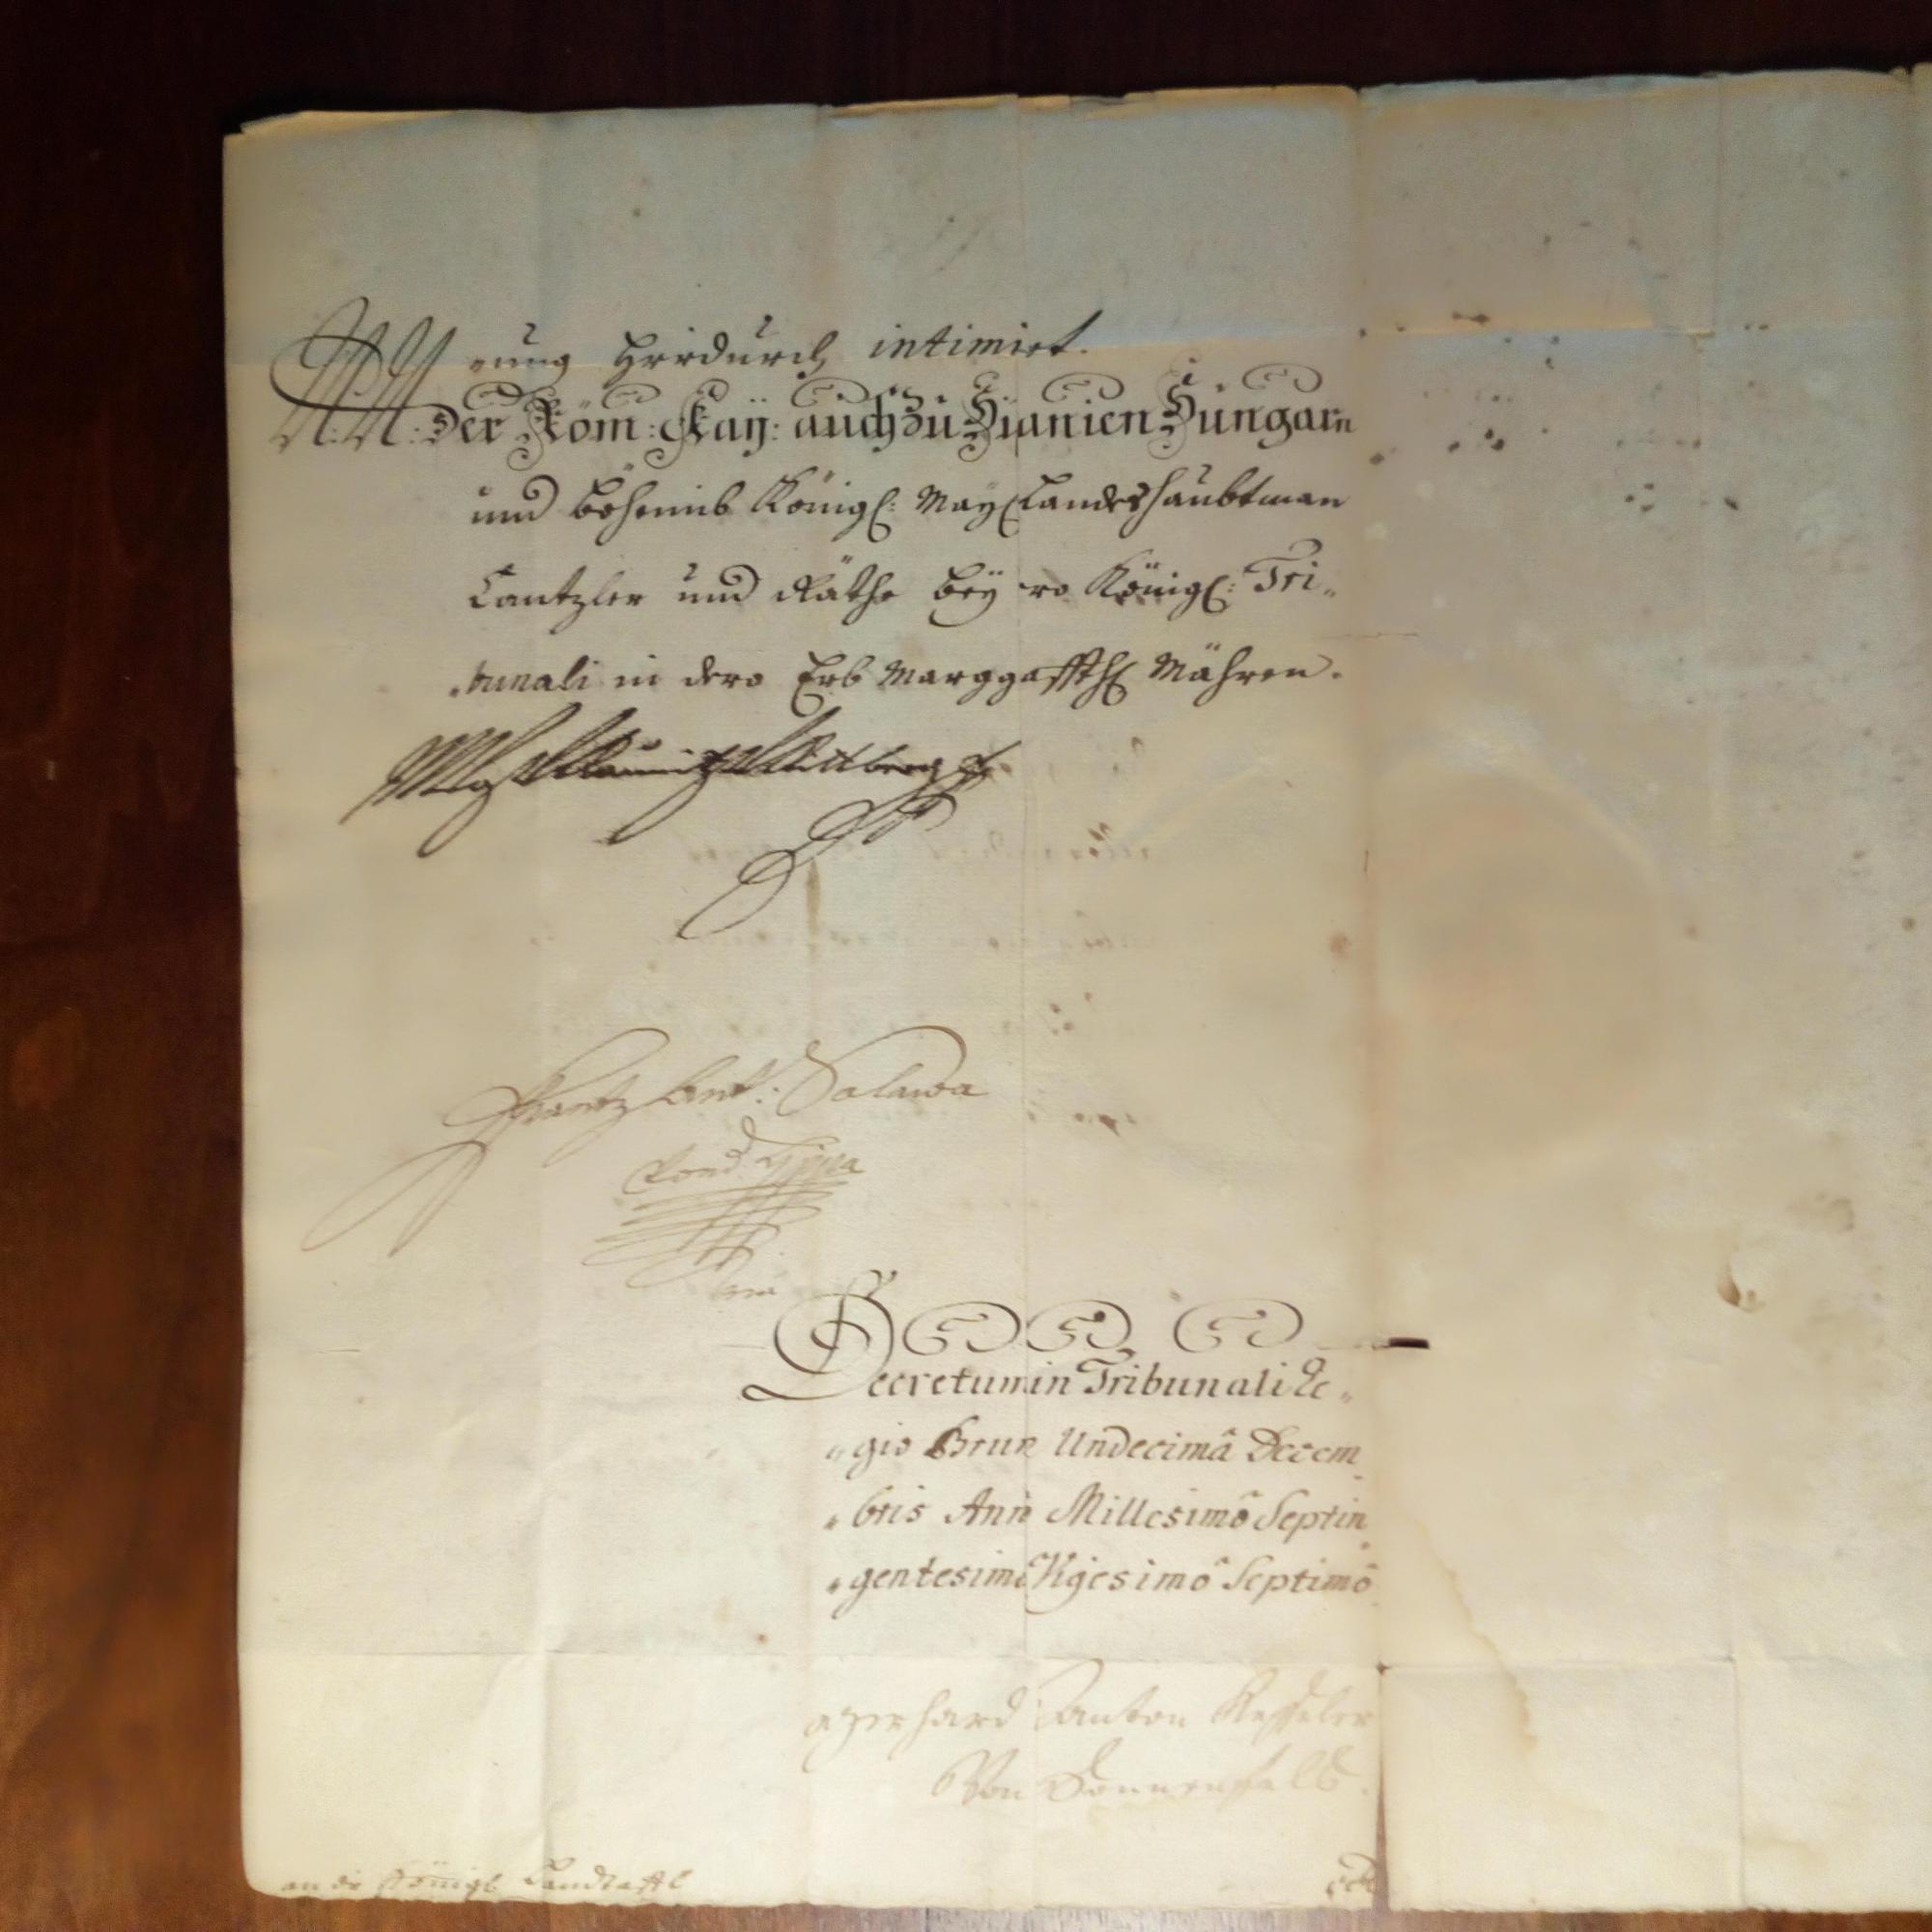 nung hierdurch intimirt.
N: N: Der Röm: Kaÿ: auch zu Hispanien Hungarn
und Böheimb Königl: Maÿ Landeshaubtman
Cantzler und Räthe beÿ ro Königl: Tri„
„bunali in dero Erb Marggraffthl Mähren.
M G Kaunitz Rittberg
Frantz Ant: Salawa
von Lippa
mp
Decretum in Tribunali Re„
„gio Brun Undecimâ Decem„
„bris Ann Millesimô Septin„
„gentesim Vigesimô Septimô
Anton Kesseler
Von
an die Königl Landtaffl